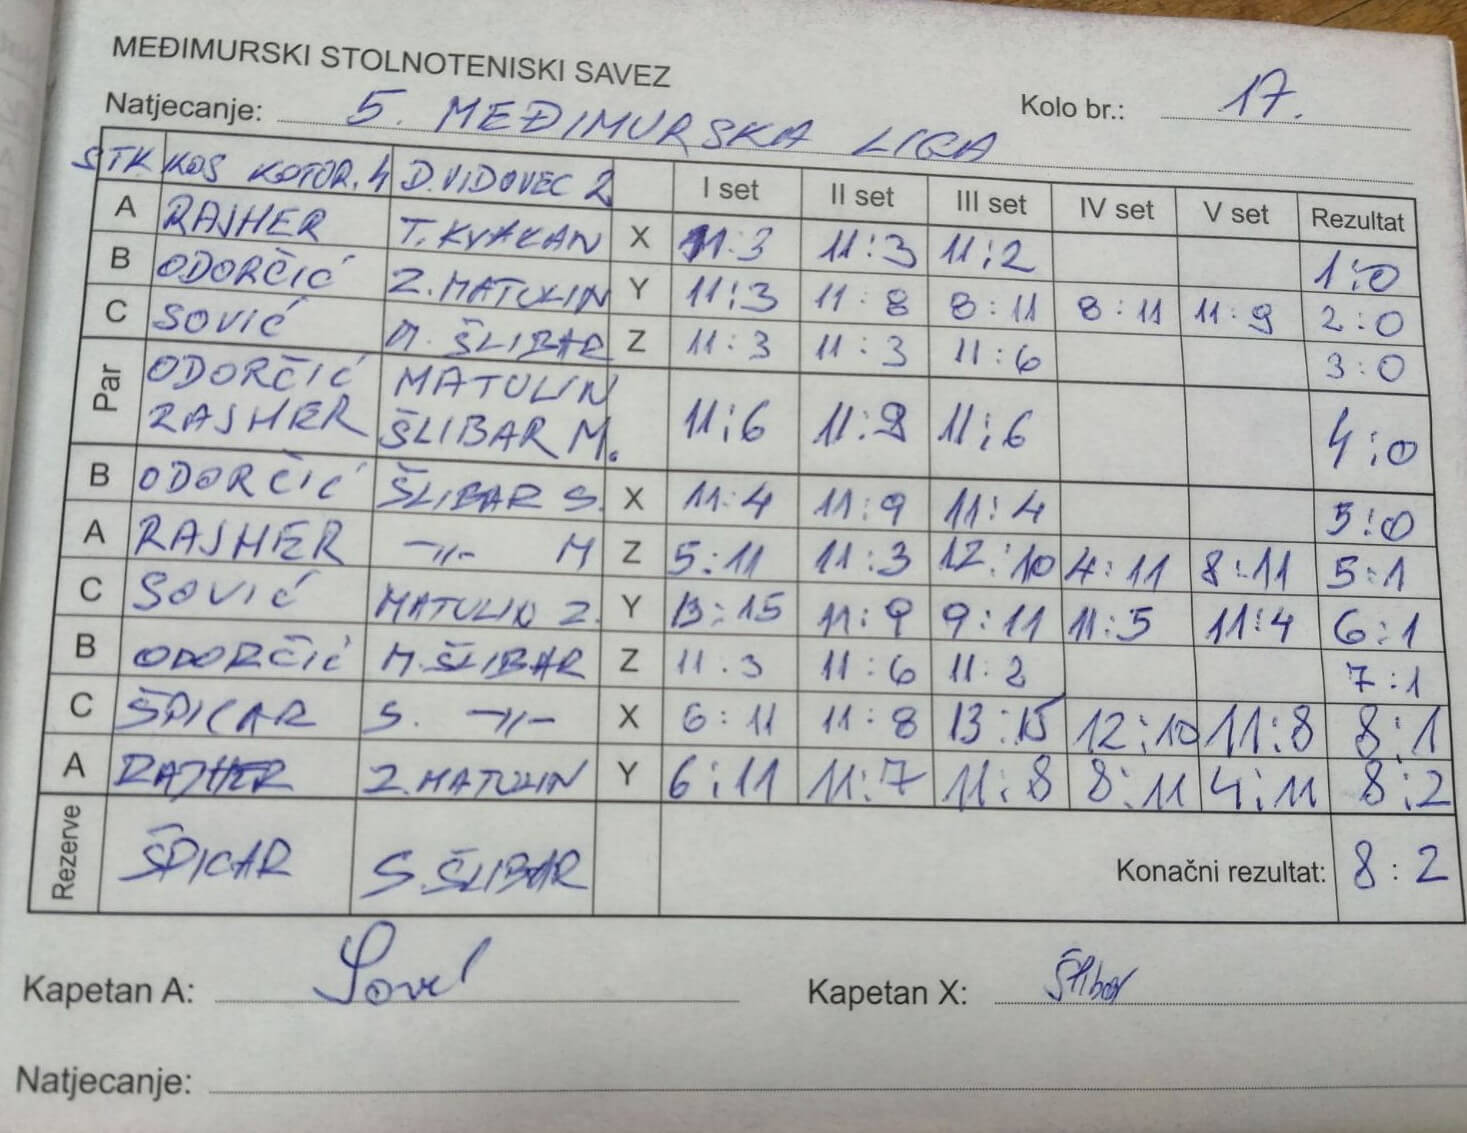 MEĐIMURSKI STOLNOTENISKI SAVEZ
Natjecanje: 5. MEĐIMURSKA LIGA Kolo br.: 17.
STK KOS KOTOR. 4 D. VIDOVEC 2 I set II set III set IV set V set Rezultat
A RAJHER T. KVAKAN X 11:3 11:3 11:2 1:0
B ODORČIĆ Z. MATULIN Y 11:3 11:8 8:11 8:11 11:9 2:0
C SOVIĆ M. ŠLIBAR Z 11:3 11:3 11:6 3:0
Par ODORČIĆ MATULIN
RAJHER ŠLIBAR M. 11:6 11: 11:6 4:0
B ODORČIĆ ŠLIBAR S. X 11:4 11:9 11:4 5:0
A RAJHER -||- M Z 5:11 11:3 12:10 4:11 8:11 5:1
C SOVIĆ MATULIN Z. Y 13:15 11:9 9:11 11:5 11:4 6:1
B ODORČIĆ M. ŠLIBAR Z 11.3 11:6 11:2 7:1
C ŠPICAR S. -||- X 6:11 11:8 13:15 12:10 11:8 8:1
A RAJHER Z. MATULIN Y 6:11 11:7 11:8 8:11 4:11 8:2
Rezerve ŠPICAR S. ŠLIBAR Konačni rezultat: 8:2
Kapetan A: Kapetan X: Šlibar
Natjecanje: